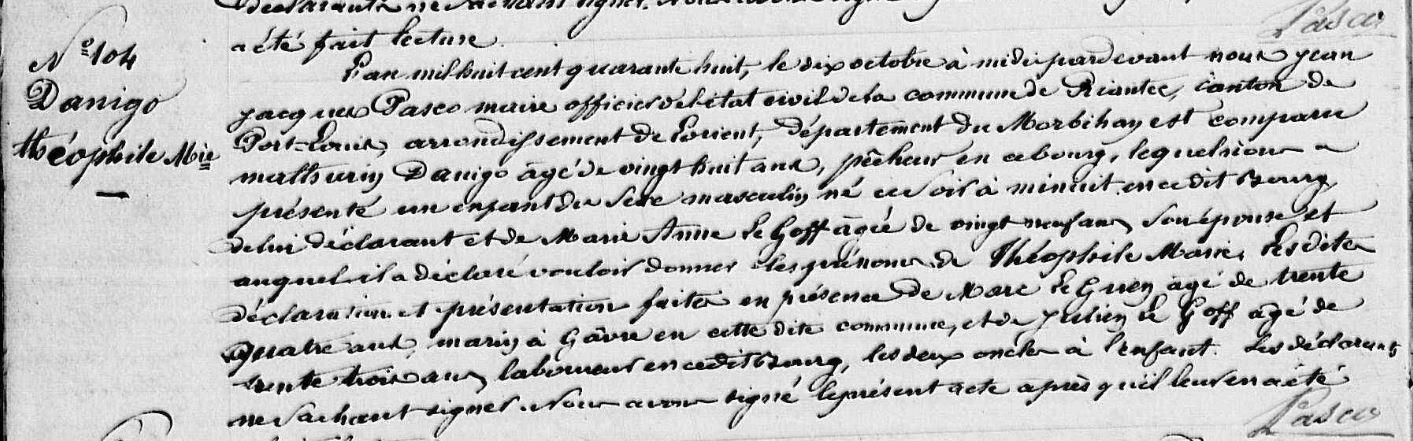 a été fait lecture
Pasco
N° 104
Danigo
théophile Mie
L'an mil huit cent quarante huit, le dix octobre à midi pardevant nous jean
jacques Pasco maire officier de l'état civil de la commune de Riantec, canton de
Port-Louis, arrondissement de Lorient, département du Morbihan est comparu
mathurin Danigo âgé de vingt huit ans, pêcheur en ce bourg, lequel nous a
présenté un enfant du sexe masculin né ce soir à minuit en cedit Bourg
de lui déclarant et de Marie Anne Le Goff âgée de vingt neuf ans, son épouse et
auquel il a déclaré vouloir donner les prénoms de Théophile Marie, Lesdites
déclaration et présentation faites en présence de Marc Le Guen âgé de trente
quatre ans, marin à Gâvre en cette dite commune, et de Julien Le Goff âgé de
trente trois ans, laboureur en cedit Bourg, les deux oncles à l'enfant. Les déclarants
ne sachant signer. Nous avons signé le présent acte après qu'il leur en a été
Pasco